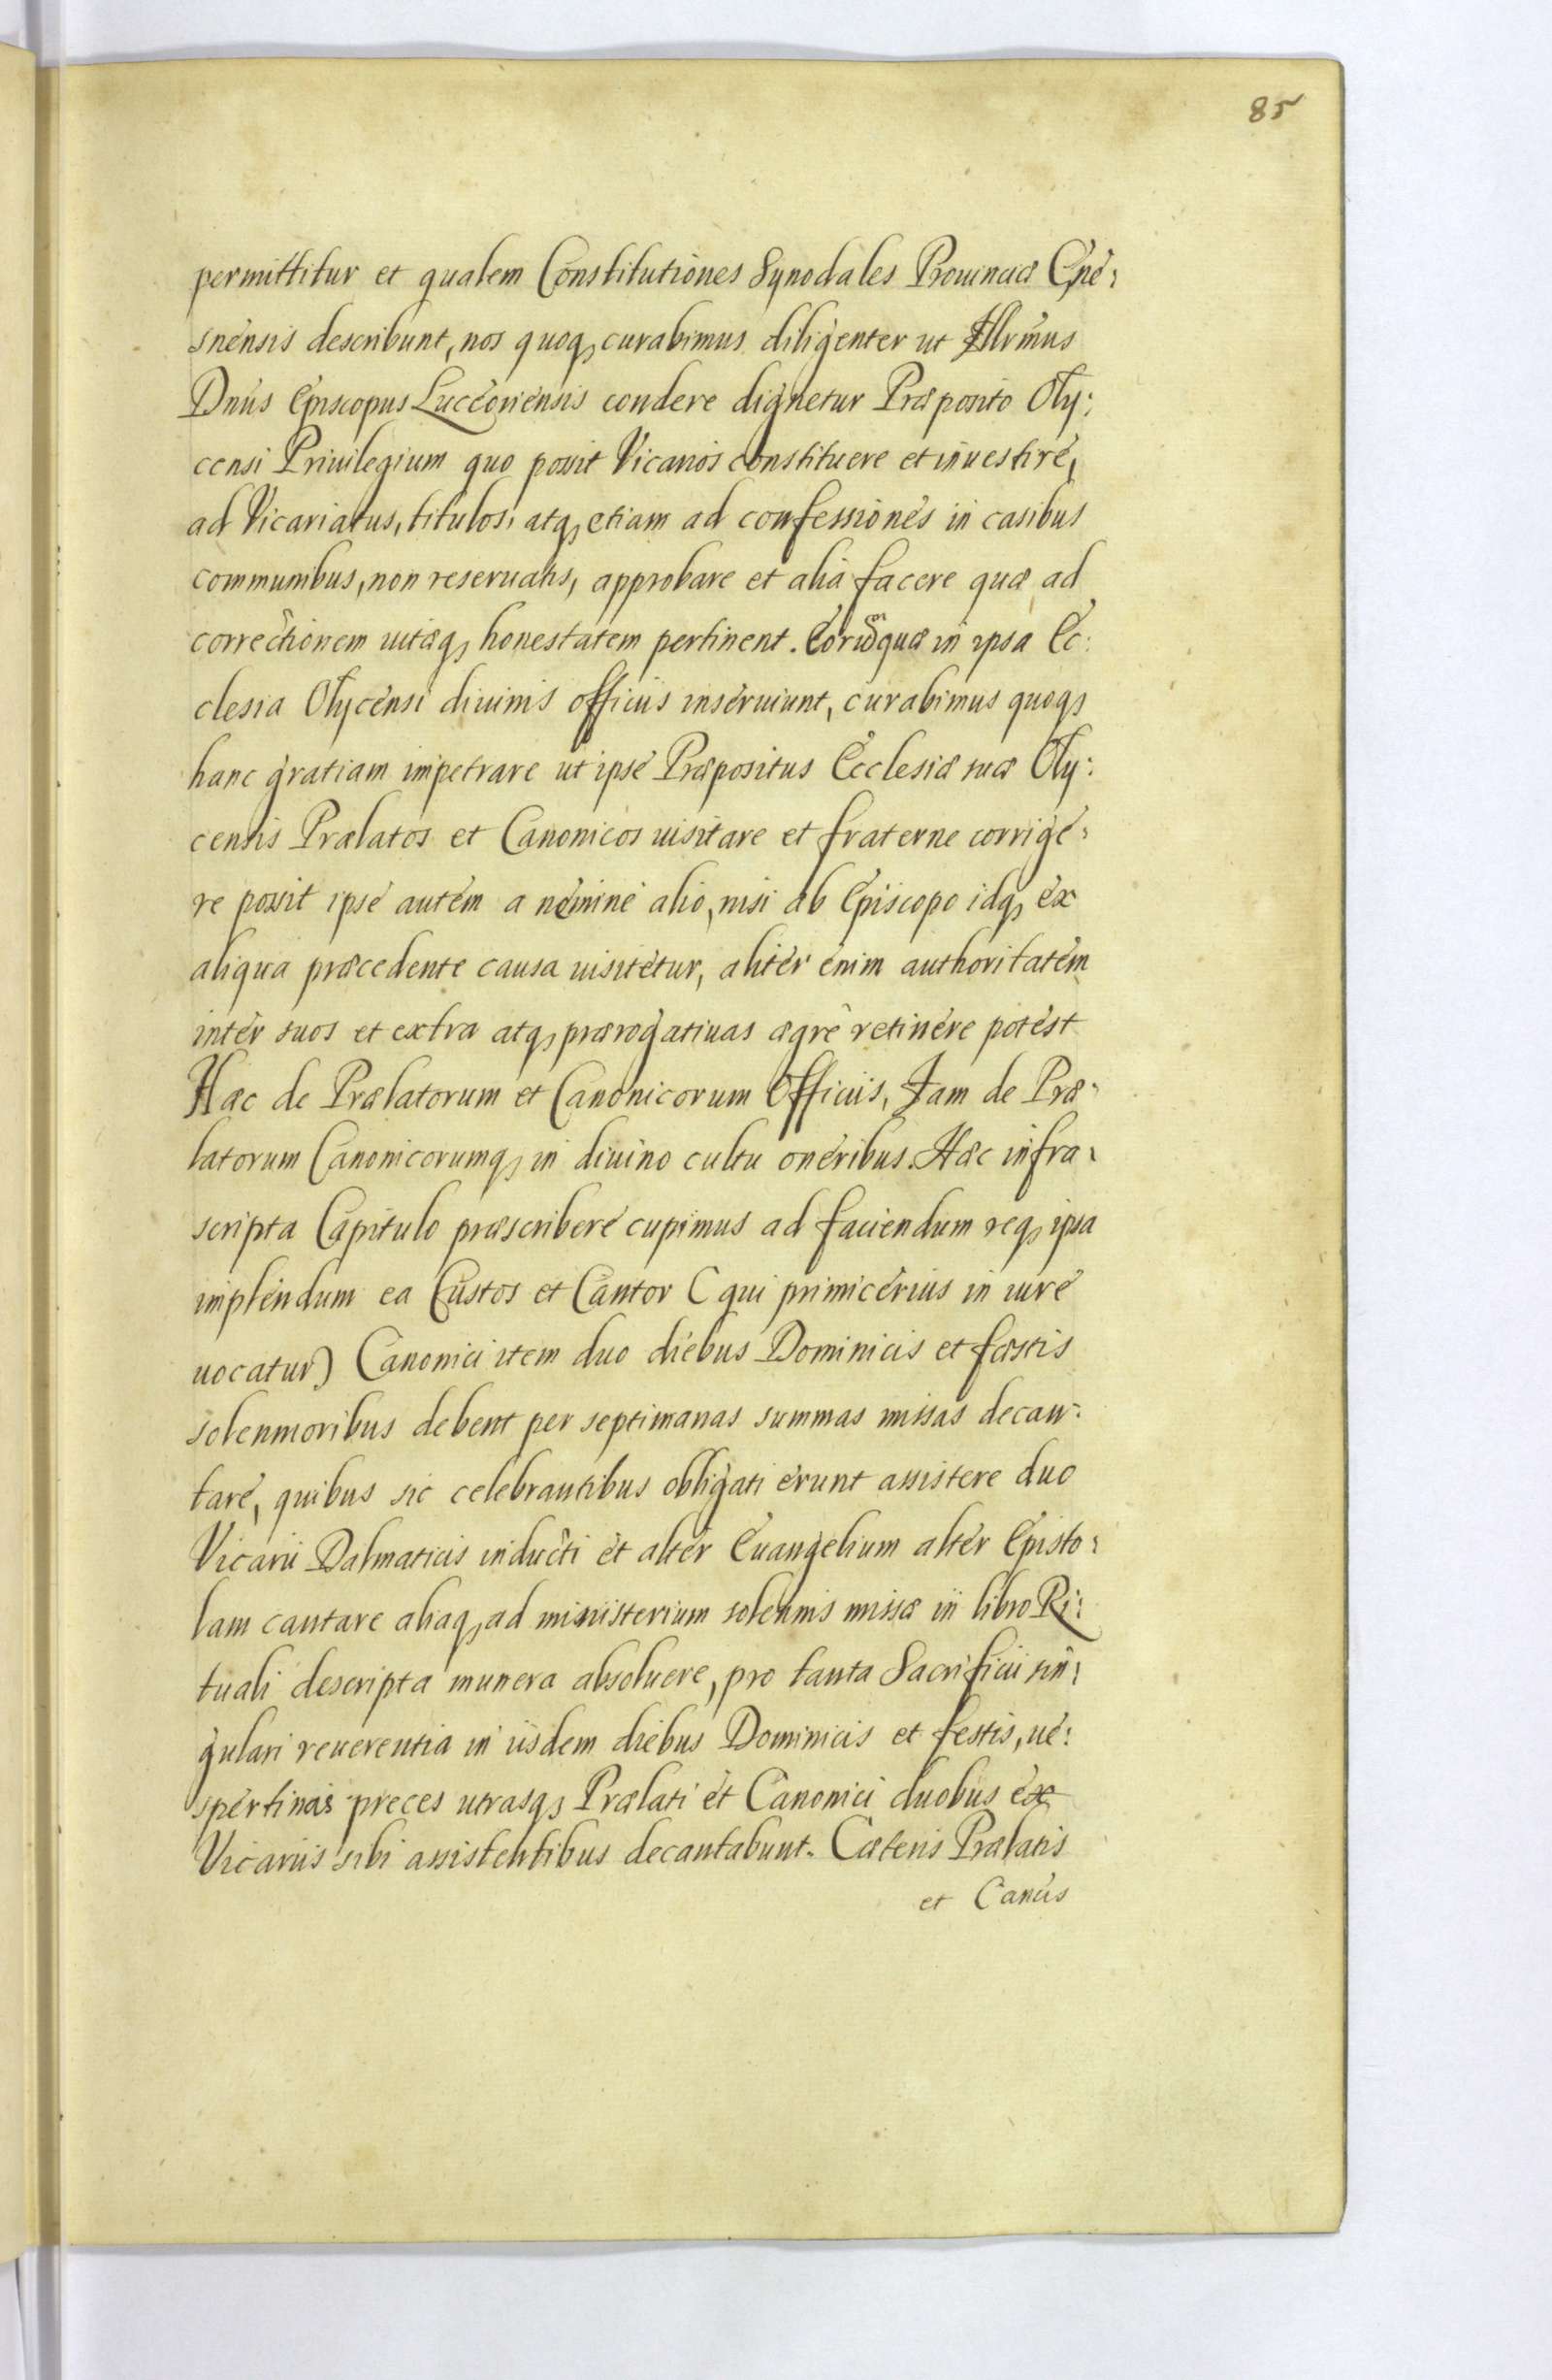 85
permittitur et qualem Constitutiones Synodales Prouinciæ Gne:
snensis describunt, nos quoqꝫ curabimus diligenter ut Illrmus
Dnus Episcopus Luceoriensis condere dignetur Præposito Oly:
censi Priuilegium quo possit Vicarios constituere et inuestire,
ad Vicariatus, titulos, atqꝫ etiam ad confessiones in casibus
communibus, non reseruatis, approbare et alia facere quæ ad
correctionem uitæqꝫ honestatem pertinent. Eorũ quæ in ipsa Ec:
clesia Olycensi diuinis officiis inseruiunt, curabimus quoqꝫ
hanc gratiam impetrare ut ipse Præpositus Ecclesiæ suæ Oly:
censis Prælatos et Canonicos uisitare et fraterne corrige:
re possit ipse autem a nemine alio, nisi ab Episcopo idqꝫ ex
aliqua præcedente causa uisitetur, aliter enim authoritatem
inter suos et extra atqꝫ prærogatiuas ægre retinere potest
Hæc de Prælatorum et Canonicorum Officiis, Iam de Præ:
latorum Canonicorumqꝫ in diuino cultu oneribus. Hæc infra:
scripta Capitulo præscribere cupimus ad faciendum reqꝫ ipsa
implendum ea Custos et Cantor ( qui primicerius in iure
uocatur) Canonici item duo diebus Dominicis et fæstis
solennioribus debent per septimanas summas missas decan:
tare, quibus sic celebrantibus obligati erunt assistere duo
Vicarii Dalmaticis inducti et alter Euangelium alter Episto:
lam cantare aliaqꝫ ad ministerium solennis missæ in libro Ri:
tuali descripta munera absoluere, pro tanta Sacrificii sin:
gulari reuerentia in iisdem diebus Dominicis et festis, ue:
spertinas preces utrasqꝫ Prælati et Canonici duobus ex
Vicariis sibi assistentibus decantabunt. Cæteris Prælatis
et Canćis